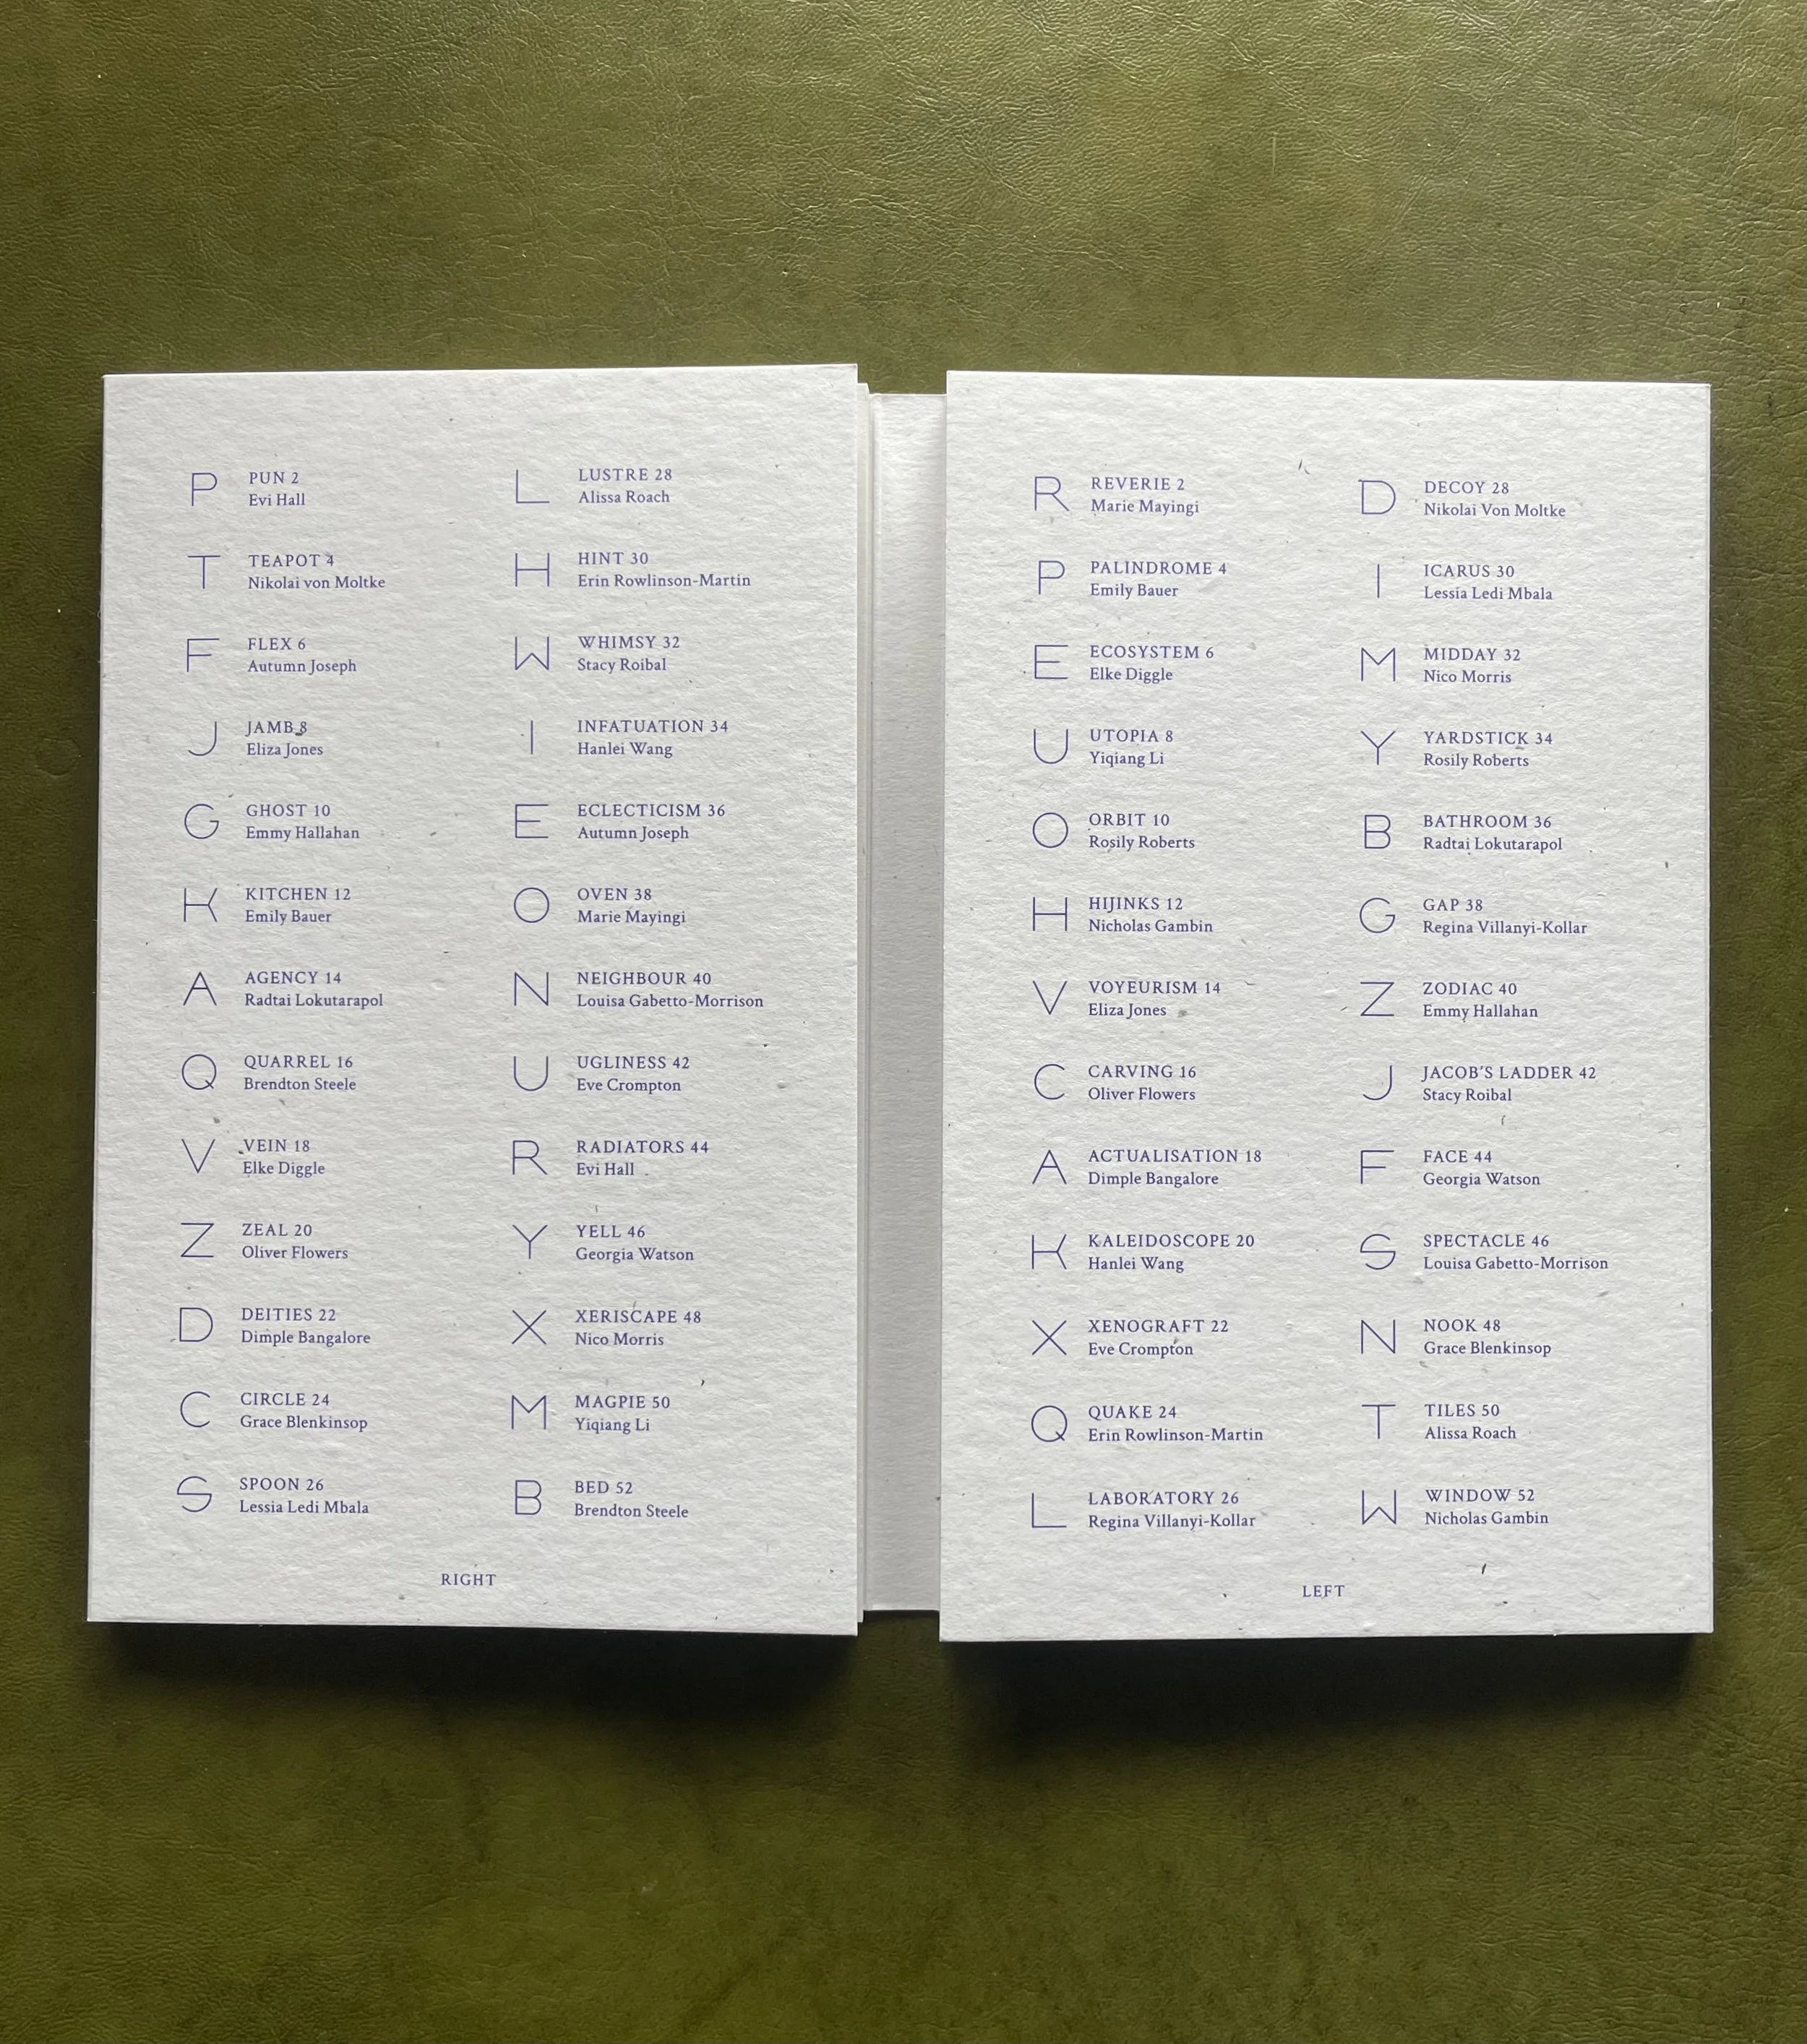 P
PUN 2
Evi Hall
T
TEAPOT 4
Nikolai von Moltke
F
FLEX 6
Autumn Joseph
J
JAMB 8
Eliza Jones
G
GHOST 10
Emmy Hallahan
K
KITCHEN 12
Emily Bauer
A
AGENCY 14
Radtai Lokutarapol
Q
QUARREL 16
Brendton Steele
V
VEIN 18
Elke Diggle
Z
ZEAL 20
Oliver Flowers
D
DEITIES 22
Dimple Bangalore
C
CIRCLE 24
Grace Blenkinsop
S
SPOON 26
Lessia Ledi Mbala
L
LUSTRE 28
Alissa Roach
H
HINT 30
Erin Rowlinson-Martin
W
WHIMSY 32
Stacy Roibal
I
INFATUATION 34
Hanlei Wang
E
ECLECTICISM 36
Autumn Joseph
O
OVEN 38
Marie Mayingi
N
NEIGHBOUR 40
Louisa Gabetto-Morrison
U
UGLINESS 42
Eve Crompton
R
RADIATORS 44
Evi Hall
Y
YELL 46
Georgia Watson
X
XERISCAPE 48
Nico Morris
M
MAGPIE 50
Yiqiang Li
B
BED 52
Brendton Steele
RIGHT
R
REVERIE 2
Marie Mayingi
P
PALINDROME 4
Emily Bauer
E
ECOSYSTEM 6
Elke Diggle
U
UTOPIA 8
Yiqiang Li
O
ORBIT 10
Rosily Roberts
H
HIJINKS 12
Nicholas Gambin
V
VOYEURISM 14
Eliza Jones
C
CARVING 16
Oliver Flowers
A
ACTUALISATION 18
Dimple Bangalore
K
KALEIDOSCOPE 20
Hanlei Wang
X
XENOGRAFT 22
Eve Crompton
Q
QUAKE 24
Erin Rowlinson-Martin
L
LABORATORY 26
Regina Villanyi-Kollar
D
DECOY 28
Nikolai Von Moltke
I
ICARUS 30
Lessia Ledi Mbala
M
MIDDAY 32
Nico Morris
Y
YARDSTICK 34
Rosily Roberts
B
BATHROOM 36
Radtai Lokutarapol
G
GAP 38
Regina Villanyi-Kollar
Z
ZODIAC 40
Emmy Hallahan
J
JACOB'S LADDER 42
Stacy Roibal
F
FACE 44
Georgia Watson
S
SPECTACLE 46
Louisa Gabetto-Morrison
N
NOOK 48
Grace Blenkinsop
T
TILES 50
Alissa Roach
W
WINDOW 52
Nicholas Gambin
LEFT